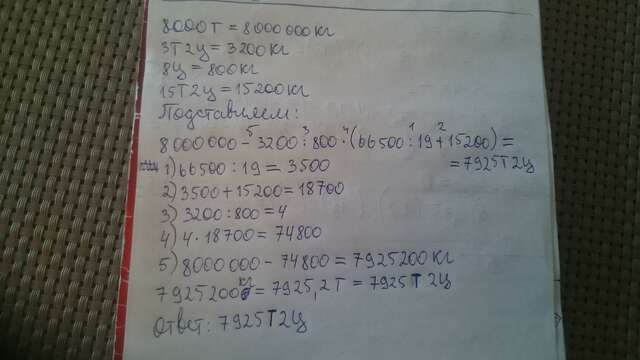 8000 т = 8000 000 кг
3т 2ц = 3200 кг
8ц = 800 кг
15т 2ц = 15200 кг
Подставляем:
5 3 4 1 2
8 000 000 - 3200 : 800 · (66500 : 19 + 15200) =
= 7925 т 2ц
1) 66500 : 19 = 3500
2) 3500 + 15200 = 18700
3) 3200 : 800 = 4
4) 4 · 18700 = 74800
5) 8000 000 - 74800 = 7925200 кг
7925200 кг = 7925,2 т = 7925 т 2ц
Ответ: 7925 т 2ц